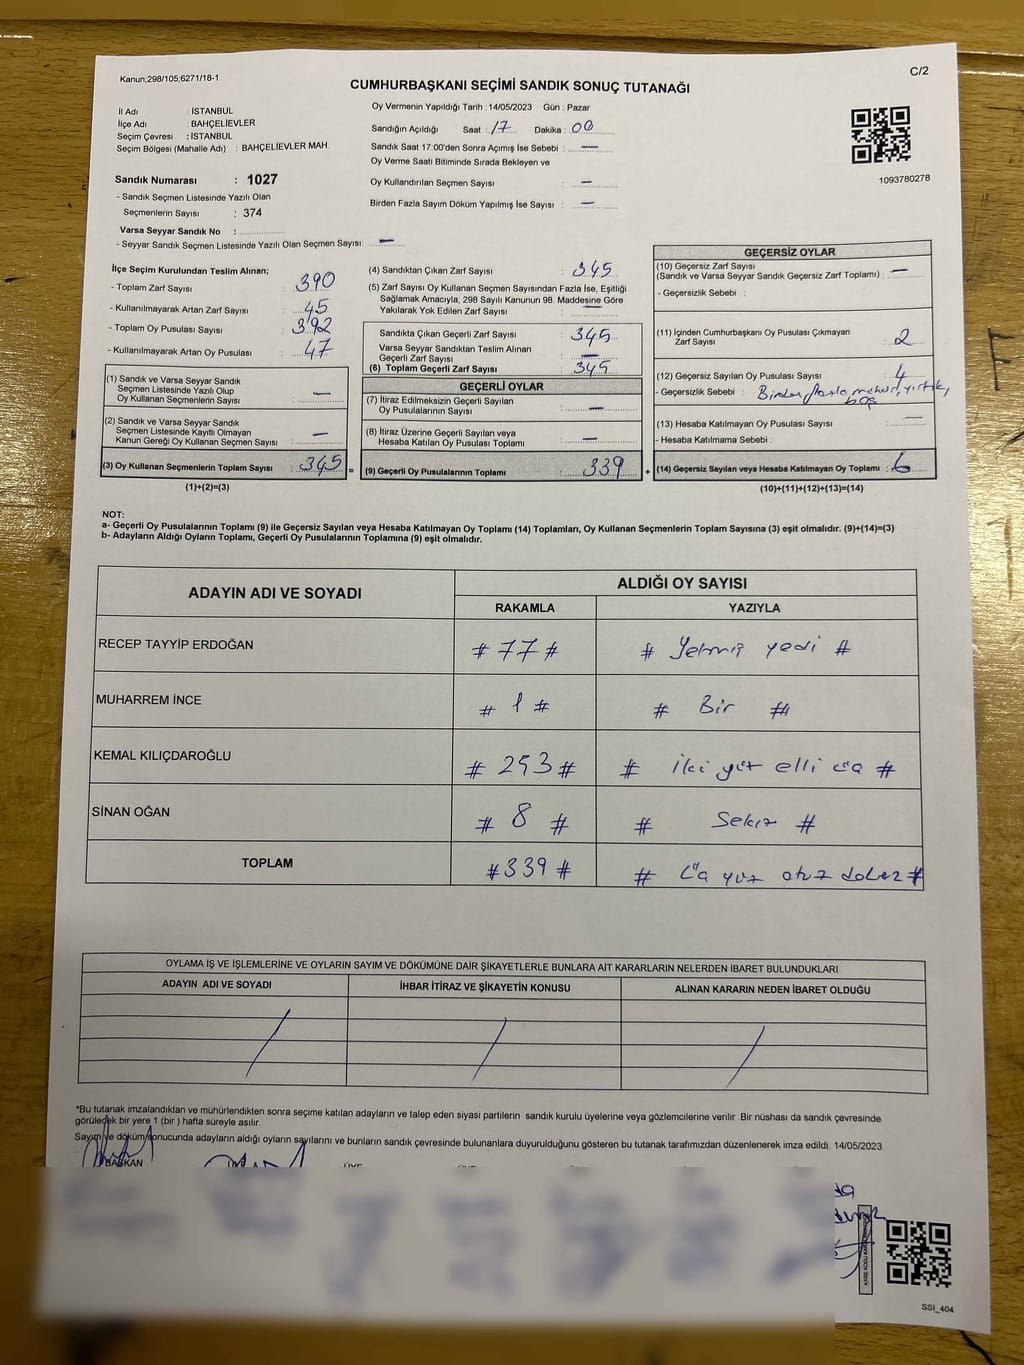 Kanun;298/105;6271/18-1
C/2
CUMHURBAŞKANI SEÇİMİ SANDIK SONUÇ TUTANAĞI
İl Adı : İSTANBUL
İlçe Adı : BAHÇELİEVLER
Seçim Çevresi : İSTANBUL
Seçim Bölgesi (Mahalle Adı) : BAHÇELİEVLER MAH.
Oy Vermenin Yapıldığı Tarih : 14/05/2023 Gün : Pazar
Sandığın Açıldığı Saat : 17 Dakika : 00
Sandık Saat 17:00'den Sonra Açımış İse Sebebi : —
Oy Verme Saati Bitiminde Sırada Bekleyen ve
Oy Kullandırılan Seçmen Sayısı : —
Birden Fazla Sayım Döküm Yapılmış İse Sayısı : —
1093780278
Sandık Numarası : 1027
- Sandık Seçmen Listesinde Yazılı Olan
Seçmenlerin Sayısı : 374
Varsa Seyyar Sandık No :
- Seyyar Sandık Seçmen Listesinde Yazılı Olan Seçmen Sayısı: —
İlçe Seçim Kurulundan Teslim Alınan;
- Toplam Zarf Sayısı : 390
- Kullanılmayarak Artan Zarf Sayısı : 45
- Toplam Oy Pusulası Sayısı : 392
- Kullanılmayarak Artan Oy Pusulası : 47
(1) Sandık ve Varsa Seyyar Sandık
Seçmen Listesinde Yazılı Olup
Oy Kullanan Seçmenlerin Sayısı : —
(2) Sandık ve Varsa Seyyar Sandık
Seçmen Listesinde Kayıtlı Olmayan
Kanun Gereği Oy Kullanan Seçmen Sayısı : —
(3) Oy Kullanan Seçmenlerin Toplam Sayısı : 345 =
(1)+(2)=(3)
(4) Sandıktan Çıkan Zarf Sayısı : 345
(5) Zarf Sayısı Oy Kullanan Seçmen Sayısından Fazla İse, Eşitliği
Sağlamak Amacıyla, 298 Sayılı Kanunun 98. Maddesine Göre
Yakılarak Yok Edilen Zarf Sayısı : —
Sandıkta Çıkan Geçerli Zarf Sayısı : 345
Varsa Seyyar Sandıktan Teslim Alınan
Geçerli Zarf Sayısı : —
(6) Toplam Geçerli Zarf Sayısı : 345
GEÇERLİ OYLAR
(7) İtiraz Edilmeksizin Geçerli Sayılan
Oy Pusulalarının Sayısı : —
(8) İtiraz Üzerine Geçerli Sayılan veya
Hesaba Katılan Oy Pusulası Toplamı : —
(9) Geçerli Oy Pusulalarının Toplamı : 339 +
GEÇERSİZ OYLAR
(10) Geçersiz Zarf Sayısı
(Sandık ve Varsa Seyyar Sandık Geçersiz Zarf Toplamı) : —
- Geçersizlik Sebebi :
(11) İçinden Cumhurbaşkanı Oy Pusulası Çıkmayan
Zarf Sayısı : 2
(12) Geçersiz Sayılan Oy Pusulası Sayısı : 4
- Geçersizlik Sebebi : Birden fazla mühür, yırtık,
boş
(13) Hesaba Katılmayan Oy Pusulası Sayısı : —
- Hesaba Katılmama Sebebi :
(14) Geçersiz Sayılan veya Hesaba Katılmayan Oy Toplamı : 6
(10)+(11)+(12)+(13)=(14)
NOT:
a- Geçerli Oy Pusulalarının Toplamı (9) ile Geçersiz Sayılan veya Hesaba Katılmayan Oy Toplamı (14) Toplamları, Oy Kullanan Seçmenlerin Toplam Sayısına (3) eşit olmalıdır. (9)+(14)=(3)
b- Adayların Aldığı Oyların Toplamı, Geçerli Oy Pusulalarının Toplamına (9) eşit olmalıdır.
ADAYIN ADI VE SOYADI
ALDIĞI OY SAYISI
RAKAMLA YAZIYLA
RECEP TAYYİP ERDOĞAN # 77 # # Yetmiş yedi #
MUHARREM İNCE # 1 # # Bir #
KEMAL KILIÇDAROĞLU # 253 # # İki yüz elli üç #
SİNAN OĞAN # 8 # # Sekiz #
TOPLAM # 339 # # Üç yüz otuz dokuz #
OYLAMA İŞ VE İŞLEMLERİNE VE OYLARIN SAYIM VE DÖKÜMÜNE DAİR ŞİKAYETLERLE BUNLARA AİT KARARLARIN NELERDEN İBARET BULUNDUKLARI
ADAYIN ADI VE SOYADI İHBAR İTİRAZ VE ŞİKAYETİN KONUSU ALINAN KARARIN NEDEN İBARET OLDUĞU
*Bu tutanak imzalandıktan ve mühürlendikten sonra seçime katılan adayların ve talep eden siyasi partilerin sandık kurulu üyelerine veya gözlemcilerine verilir .Bir nüshası da sandık çevresinde
görülecek bir yere 1 (bir ) hafta süreyle asılır.
Sayım ve döküm sonucunda adayların aldığı oyların sayılarını ve bunların sandık çevresinde bulunanlara duyurulduğunu gösteren bu tutanak tarafımızdan düzenlenerek imza edildi. 14/05/2023
BAŞKAN
SSI_404